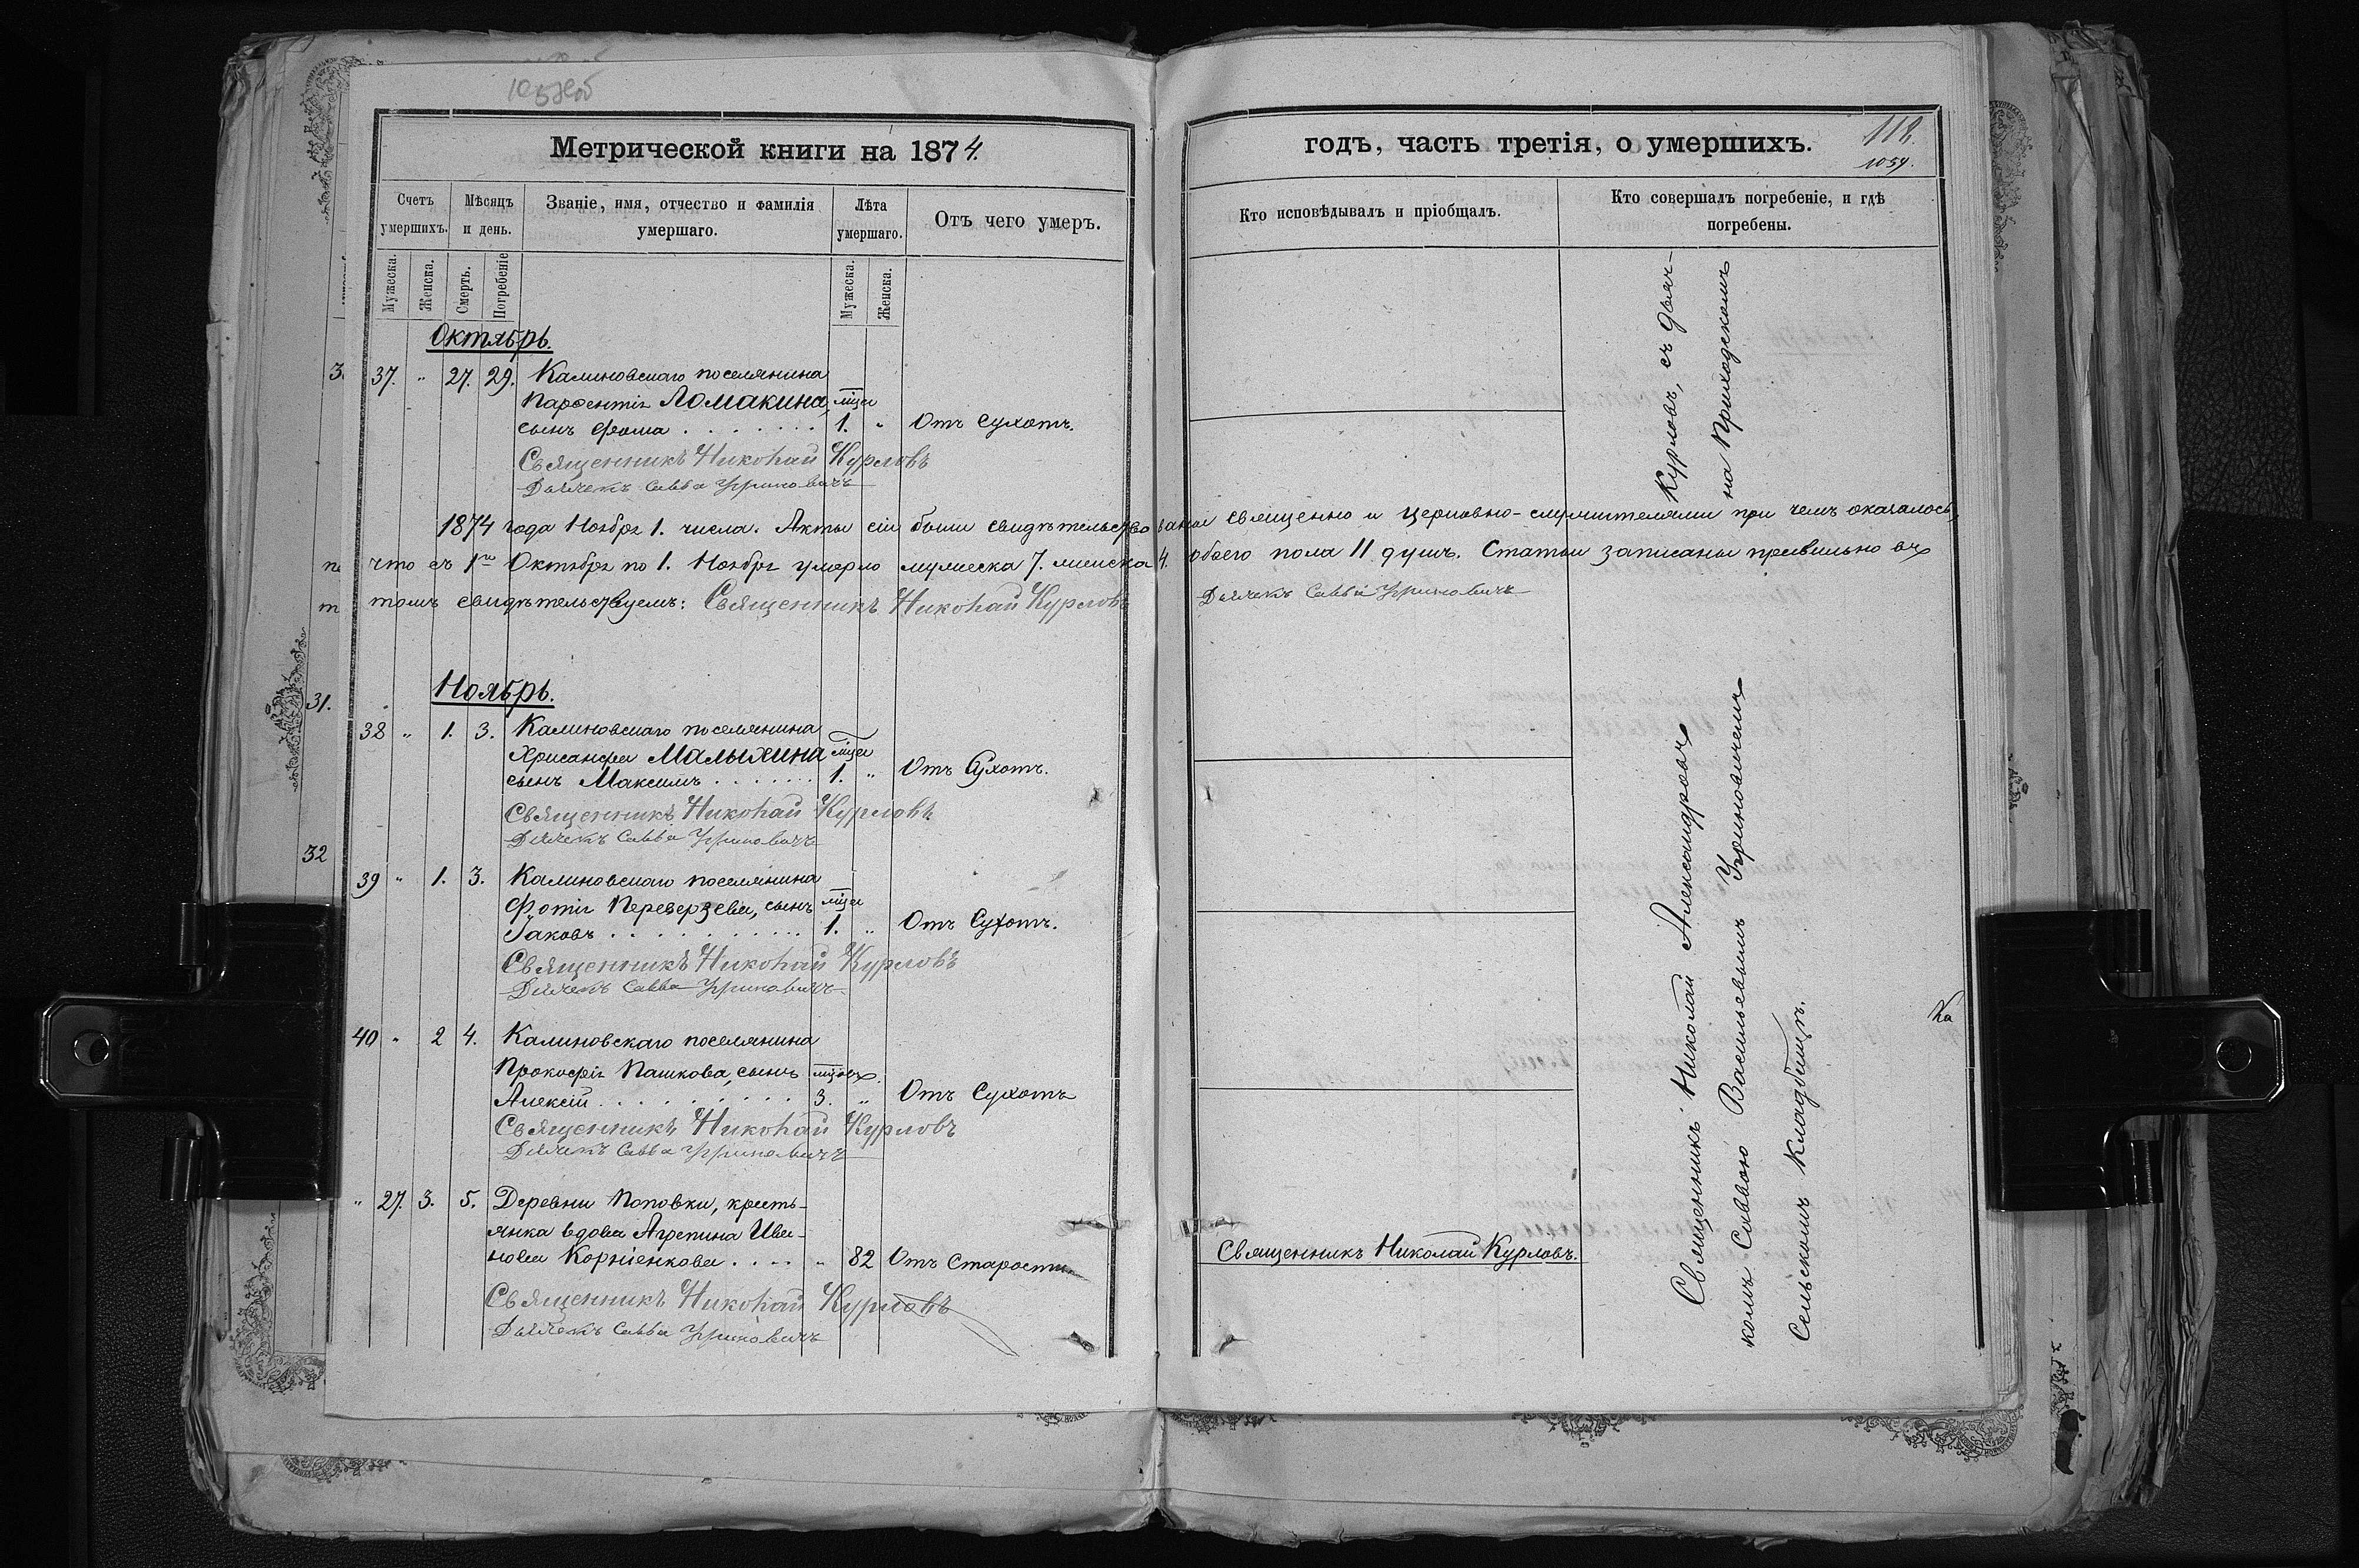 Метрической книги на 1874.
Счетъ умершихъ.
Мѣсяцъ и день.
Званіе, имя, отчество и фамилія умершаго.
Лѣта умершаго.
Отъ чего умеръ.
Мужеска.
Женска.
Смерть.
Погребеніе
Мужеска.
Женска.
Октябрь.
37. " 27. 29. Калиновскаго поселянина
Парѳентія Ломакина, мѣсц
сынъ Фома . . . . . . . 1. " Отъ Сухотъ.
Священникъ Николай Курловъ
Дьячекъ Савва Угриновичъ
1874 года Ноября 1. числа. Акты сіи были свидѣтельствованы священно и церковно-служителями при чемъ оказалось,
что съ 1го Октября по 1. Ноября умерло мужеска 7. женска 4. обоего пола 11 душъ. Статьи записаны правильно въ
томъ свидѣтельствуемъ: Священникъ Николай Курловъ Дьячекъ Савва Угриновичъ
Ноябрь.
38 " 1. 3. Калиновскаго поселянина
Хрисанфа Малыхина мѣсц
сынъ Максимъ . . . . . . . 1. " Отъ Сухотъ.
Священникъ Николай Курловъ
Дьячекъ Савва Угриновичъ
39 " 1. 3. Калиновскаго поселянина
Фотія Переверзева, сынъ мѣсц
Іаковъ . . . . . . . . . . 1. " Отъ Сухотъ.
Священникъ Николай Курловъ
Дьячекъ Савва Угриновичъ
40 " 2 4. Калиновскаго поселянина
Прокофія Пашкова, сынъ
Алексій . . . . . . . . . 3. " Отъ Сухотъ
Священникъ Николай Курловъ
Дьячекъ Савва Угриновичъ
" 27. 3. 5. Деревни Поповки, кресть-
янка вдова Агрепина Ива-
нова Корніенкова . . . . " 82 Отъ Старости
Священникъ Николай Курловъ
Дьячекъ Савва Угриновичъ
31.
32
годъ, часть третія, о умершихъ.
118.
1054.
Кто исповѣдывалъ и пріобщалъ.
Кто совершалъ погребеніе, и гдѣ погребены.
Священникъ Николай Курловъ.
Священникъ Николай Александровъ Курловъ, съ дьяч-
комъ Саввою Васильевымъ Угриновичемъ на Приходскомъ
Сельскомъ Кладбищѣ.
Ка